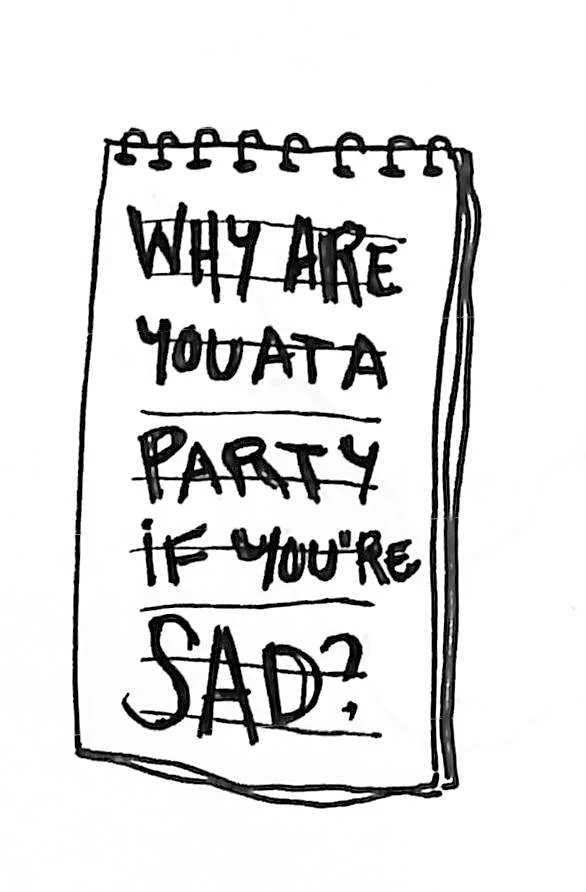 WHY ARE
YOU AT A
PARTY
iF "YOU"RE
SAD?